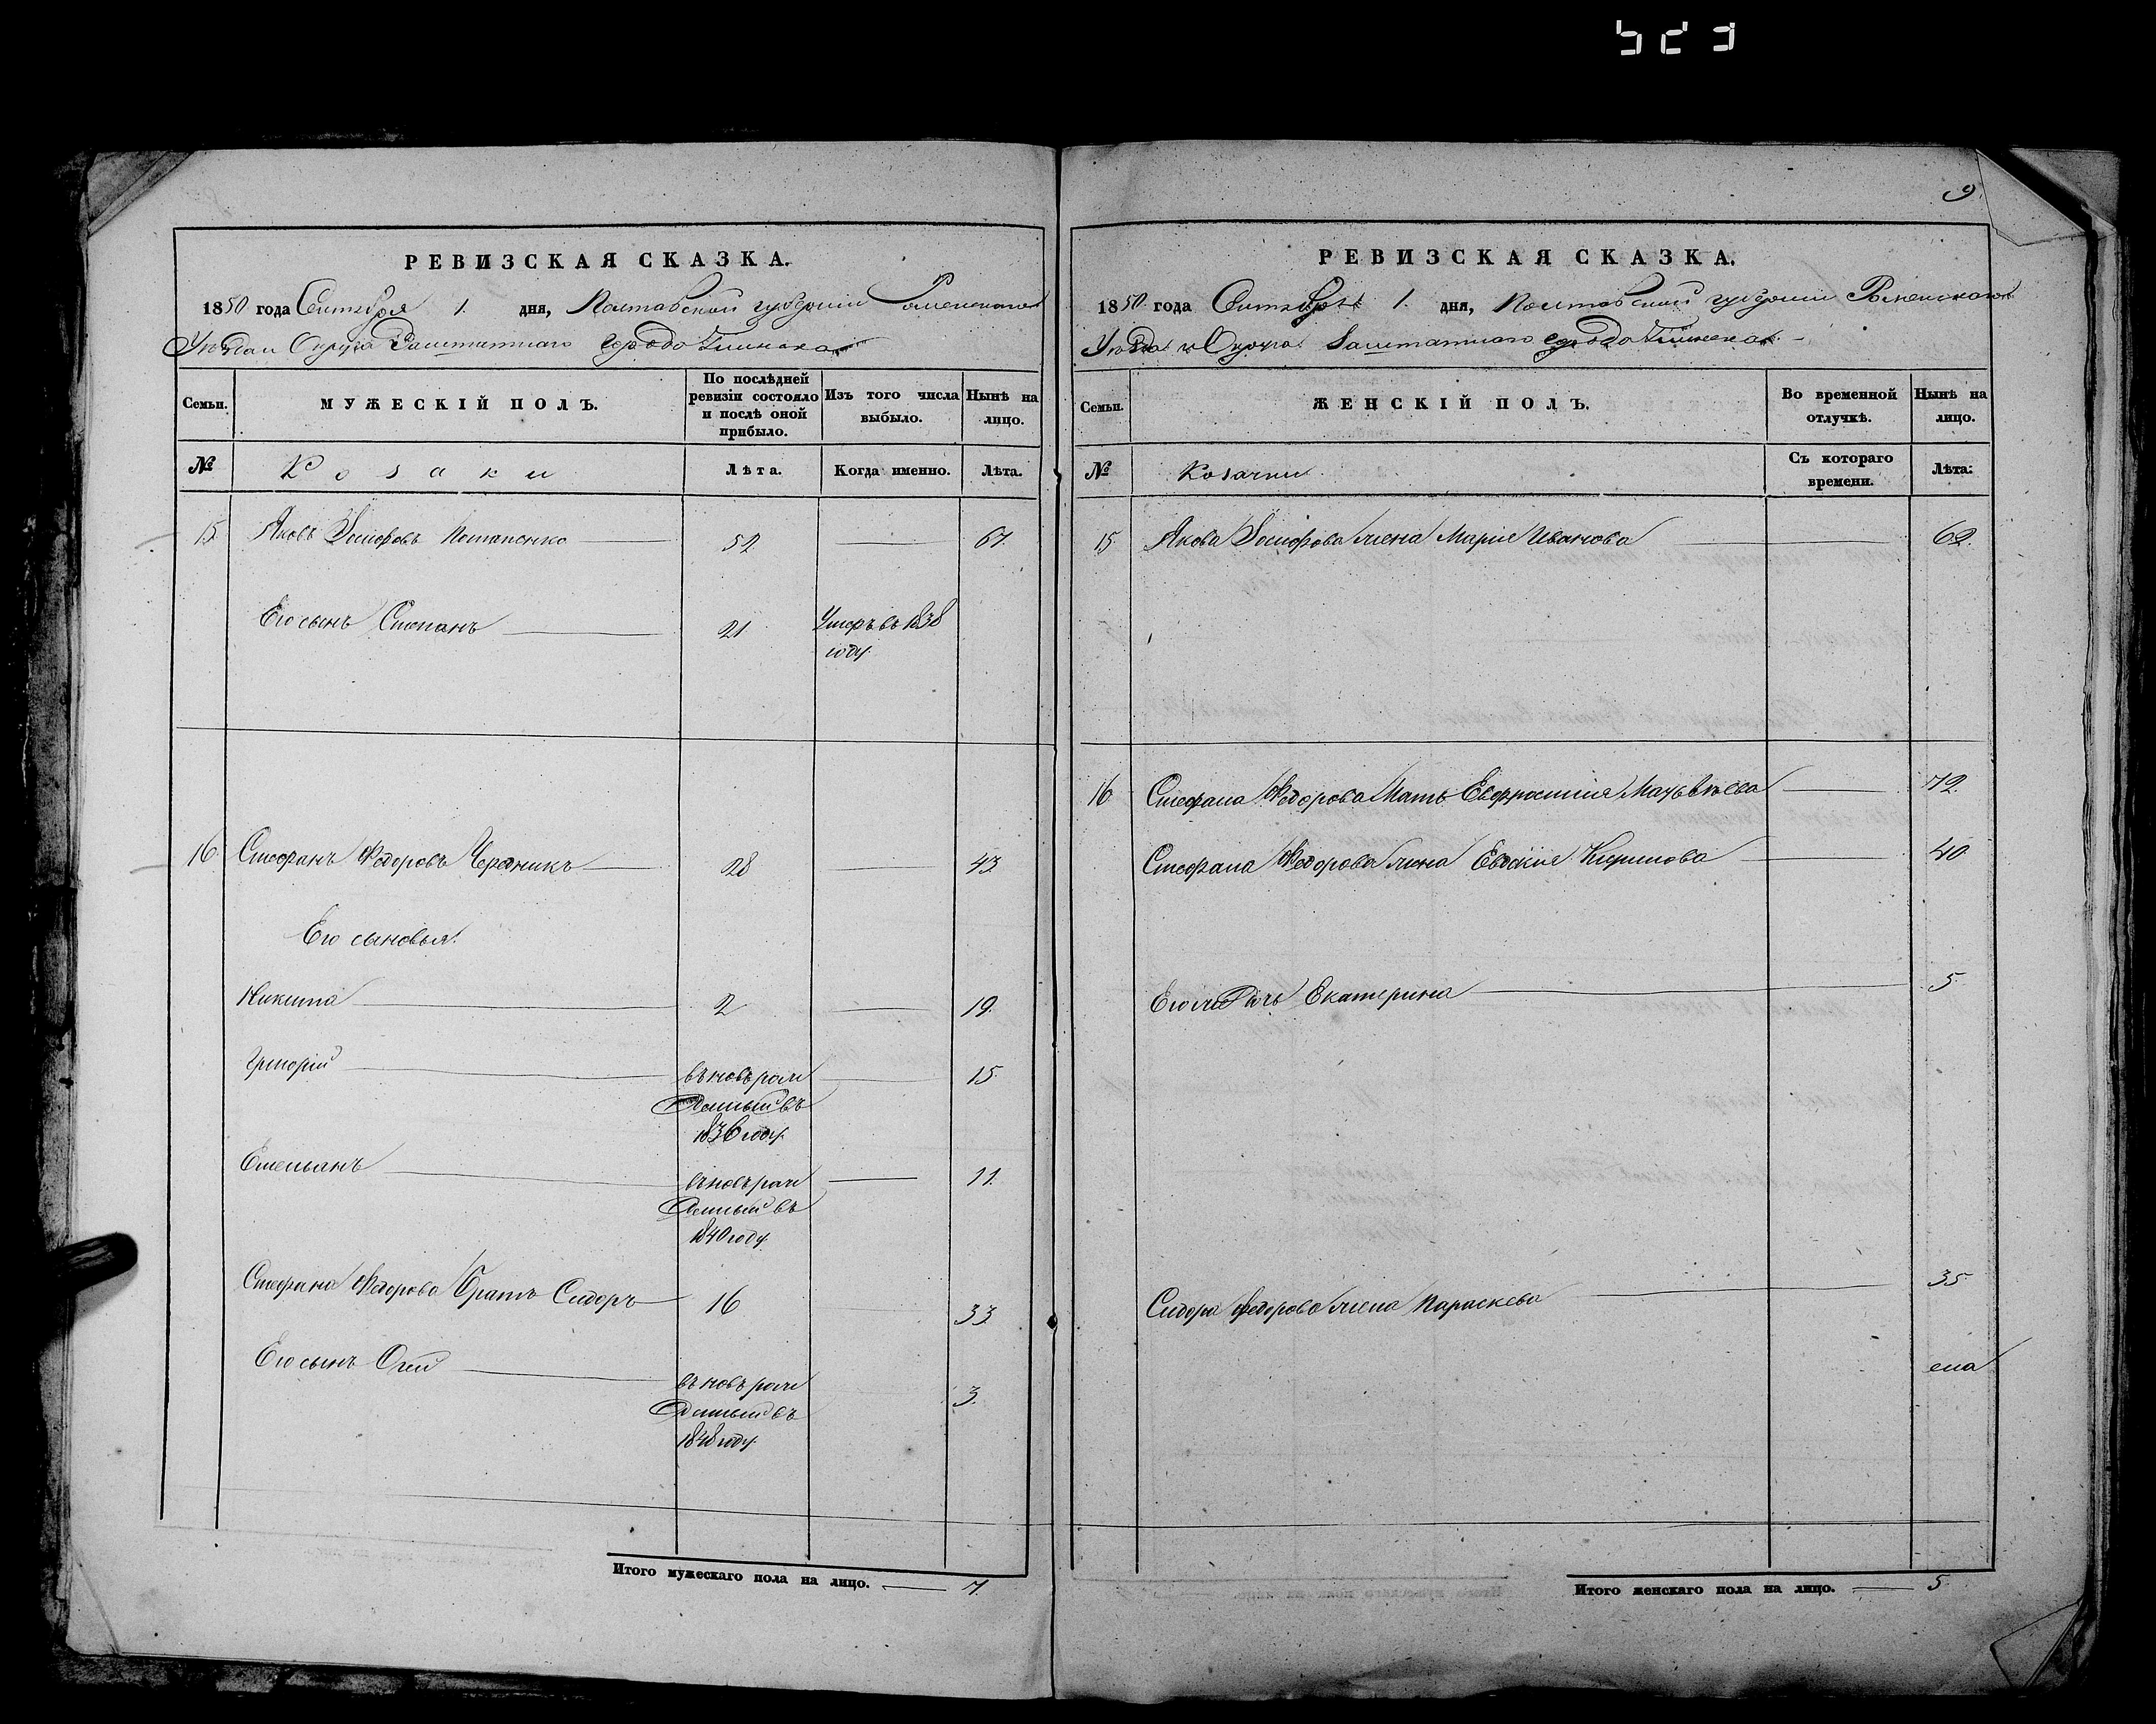 РЕВИЗСКАЯ СКАЗКА.
1850 года Сентября 1. дня, Полтавской губернии Роменскаго
Уезда и Округа Заштатнаго города Глинска
Семьи. МУЖЕСКІЙ ПОЛЪ. По послѣдней ревизіи состояло и послѣ оной прибыло. Изъ того числа выбыло. Нынѣ на лицо.
№ Козаки Лѣта. Когда именно. Лѣта.
15 Яковъ Іосифовъ Потапенко 52 67.
Его сынъ Степанъ 21 Умеръ въ 1838
году.
16 Стефанъ Федоровъ Чередникъ 28 43.
Его сыновья:
Никита 2 19.
Григорій въновь рож 15.
денный въ
1836 году.
Емельянъ въновь рож 11.
денный въ
1840 году.
Стефана Федорова братъ Сидоръ 16 33.
Его сынъ въновь рож 3.
денный въ
1848 году.
Итого мужескаго пола на лицо. 7.
9
РЕВИЗСКАЯ СКАЗКА.
1850 года Сентября 1. дня, Полтавской губернии Роменскаго
Уезда и Округа Заштатнаго города Глинска.
Семьи. ЖЕНСКІЙ ПОЛЪ. Во временной отлучкѣ. Нынѣ на лицо.
№ Козачки Съ котораго времени. Лѣта:
15 Якова Іосифова жена Марія Иванова 62.
16 Стефана Федорова Мать Евфросинія Матвѣева 72.
Стефана Федорова жена Евдокія Кирилова 40
Его дочь Екатерина 5.
Сидора Федорова жена Параскева 35
ея
Итого женскаго пола на лицо. 5.